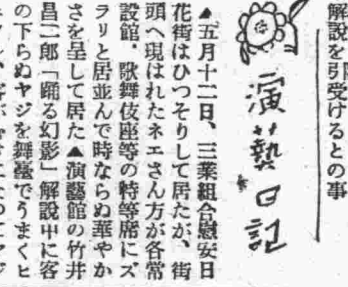 解說を引受けるとの事
演藝日記
▲五月十二日、三業組合慰安日
花街はひつそりして居たが、街
頭へ現はれたネエさん方が各常
設館。歌舞伎座等の特等席にズ
ラリと居並んで時ならぬ華やか
さを呈して居た▲演藝館の竹井
昌二郎「踊る幻影」解說中に客
の下らぬヤジを舞臺でうまくヒ